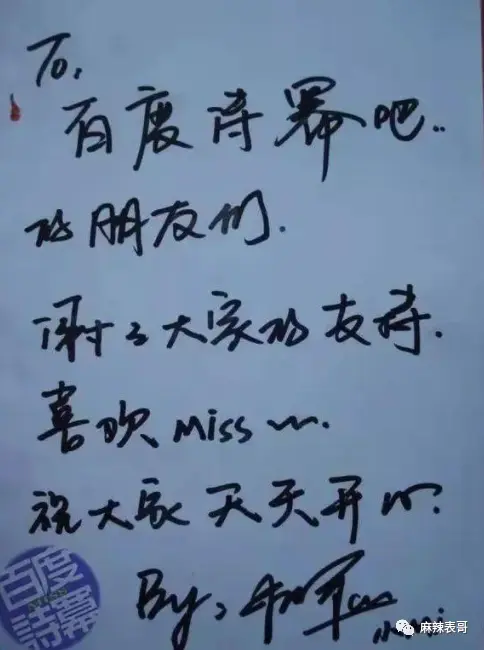 To,
百度诗幂吧..
的朋友们.
谢谢大家的支持.
喜欢 Miss
祝大家天天开心.
By,
百度
MISS
詩幕
麻辣表哥